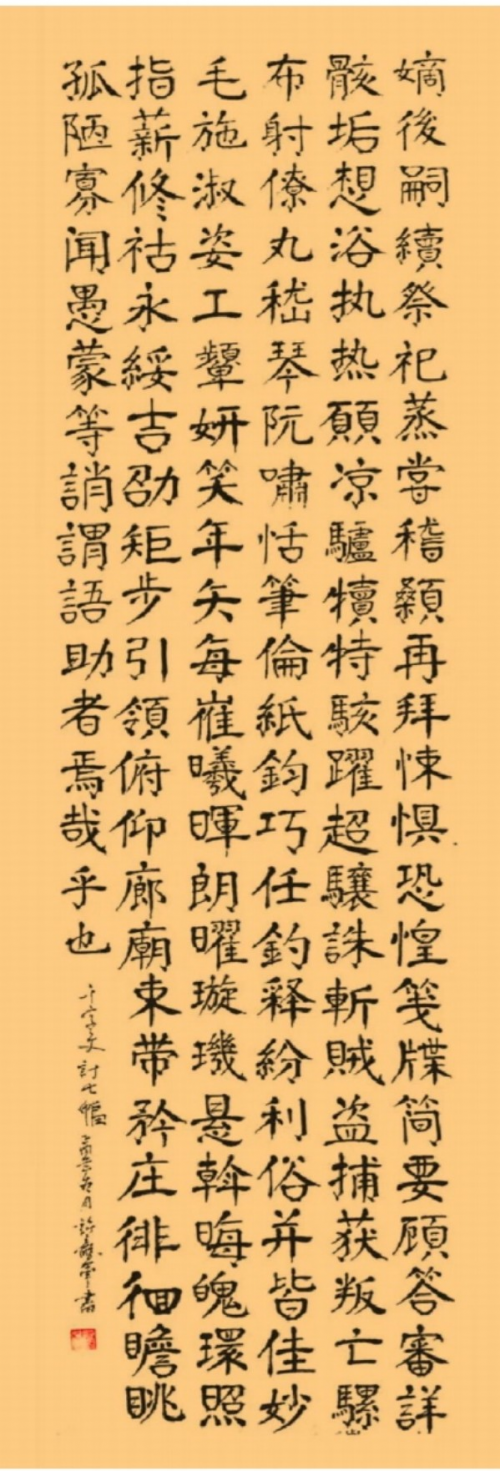 嫡後嗣續祭祀蒸尝稽顙再拜悚惧恐惶笺牒简要顾答審詳
骸垢想浴执热願凉驢犢特駭躍超驤誅斬賊盗捕获叛亡騾
布射僚丸嵇琴阮嘯恬筆倫紙鈞巧任釣释紛利俗并皆佳妙
毛施淑姿工顰妍笑年矢每催曦暉朗曜璇璣悬斡晦魄環照
指薪修祜永綏吉劭矩步引領俯仰廊廟束带矜庄徘徊瞻眺
孤陋寡闻愚蒙等誚謂語助者焉哉乎也
千字文計七幅